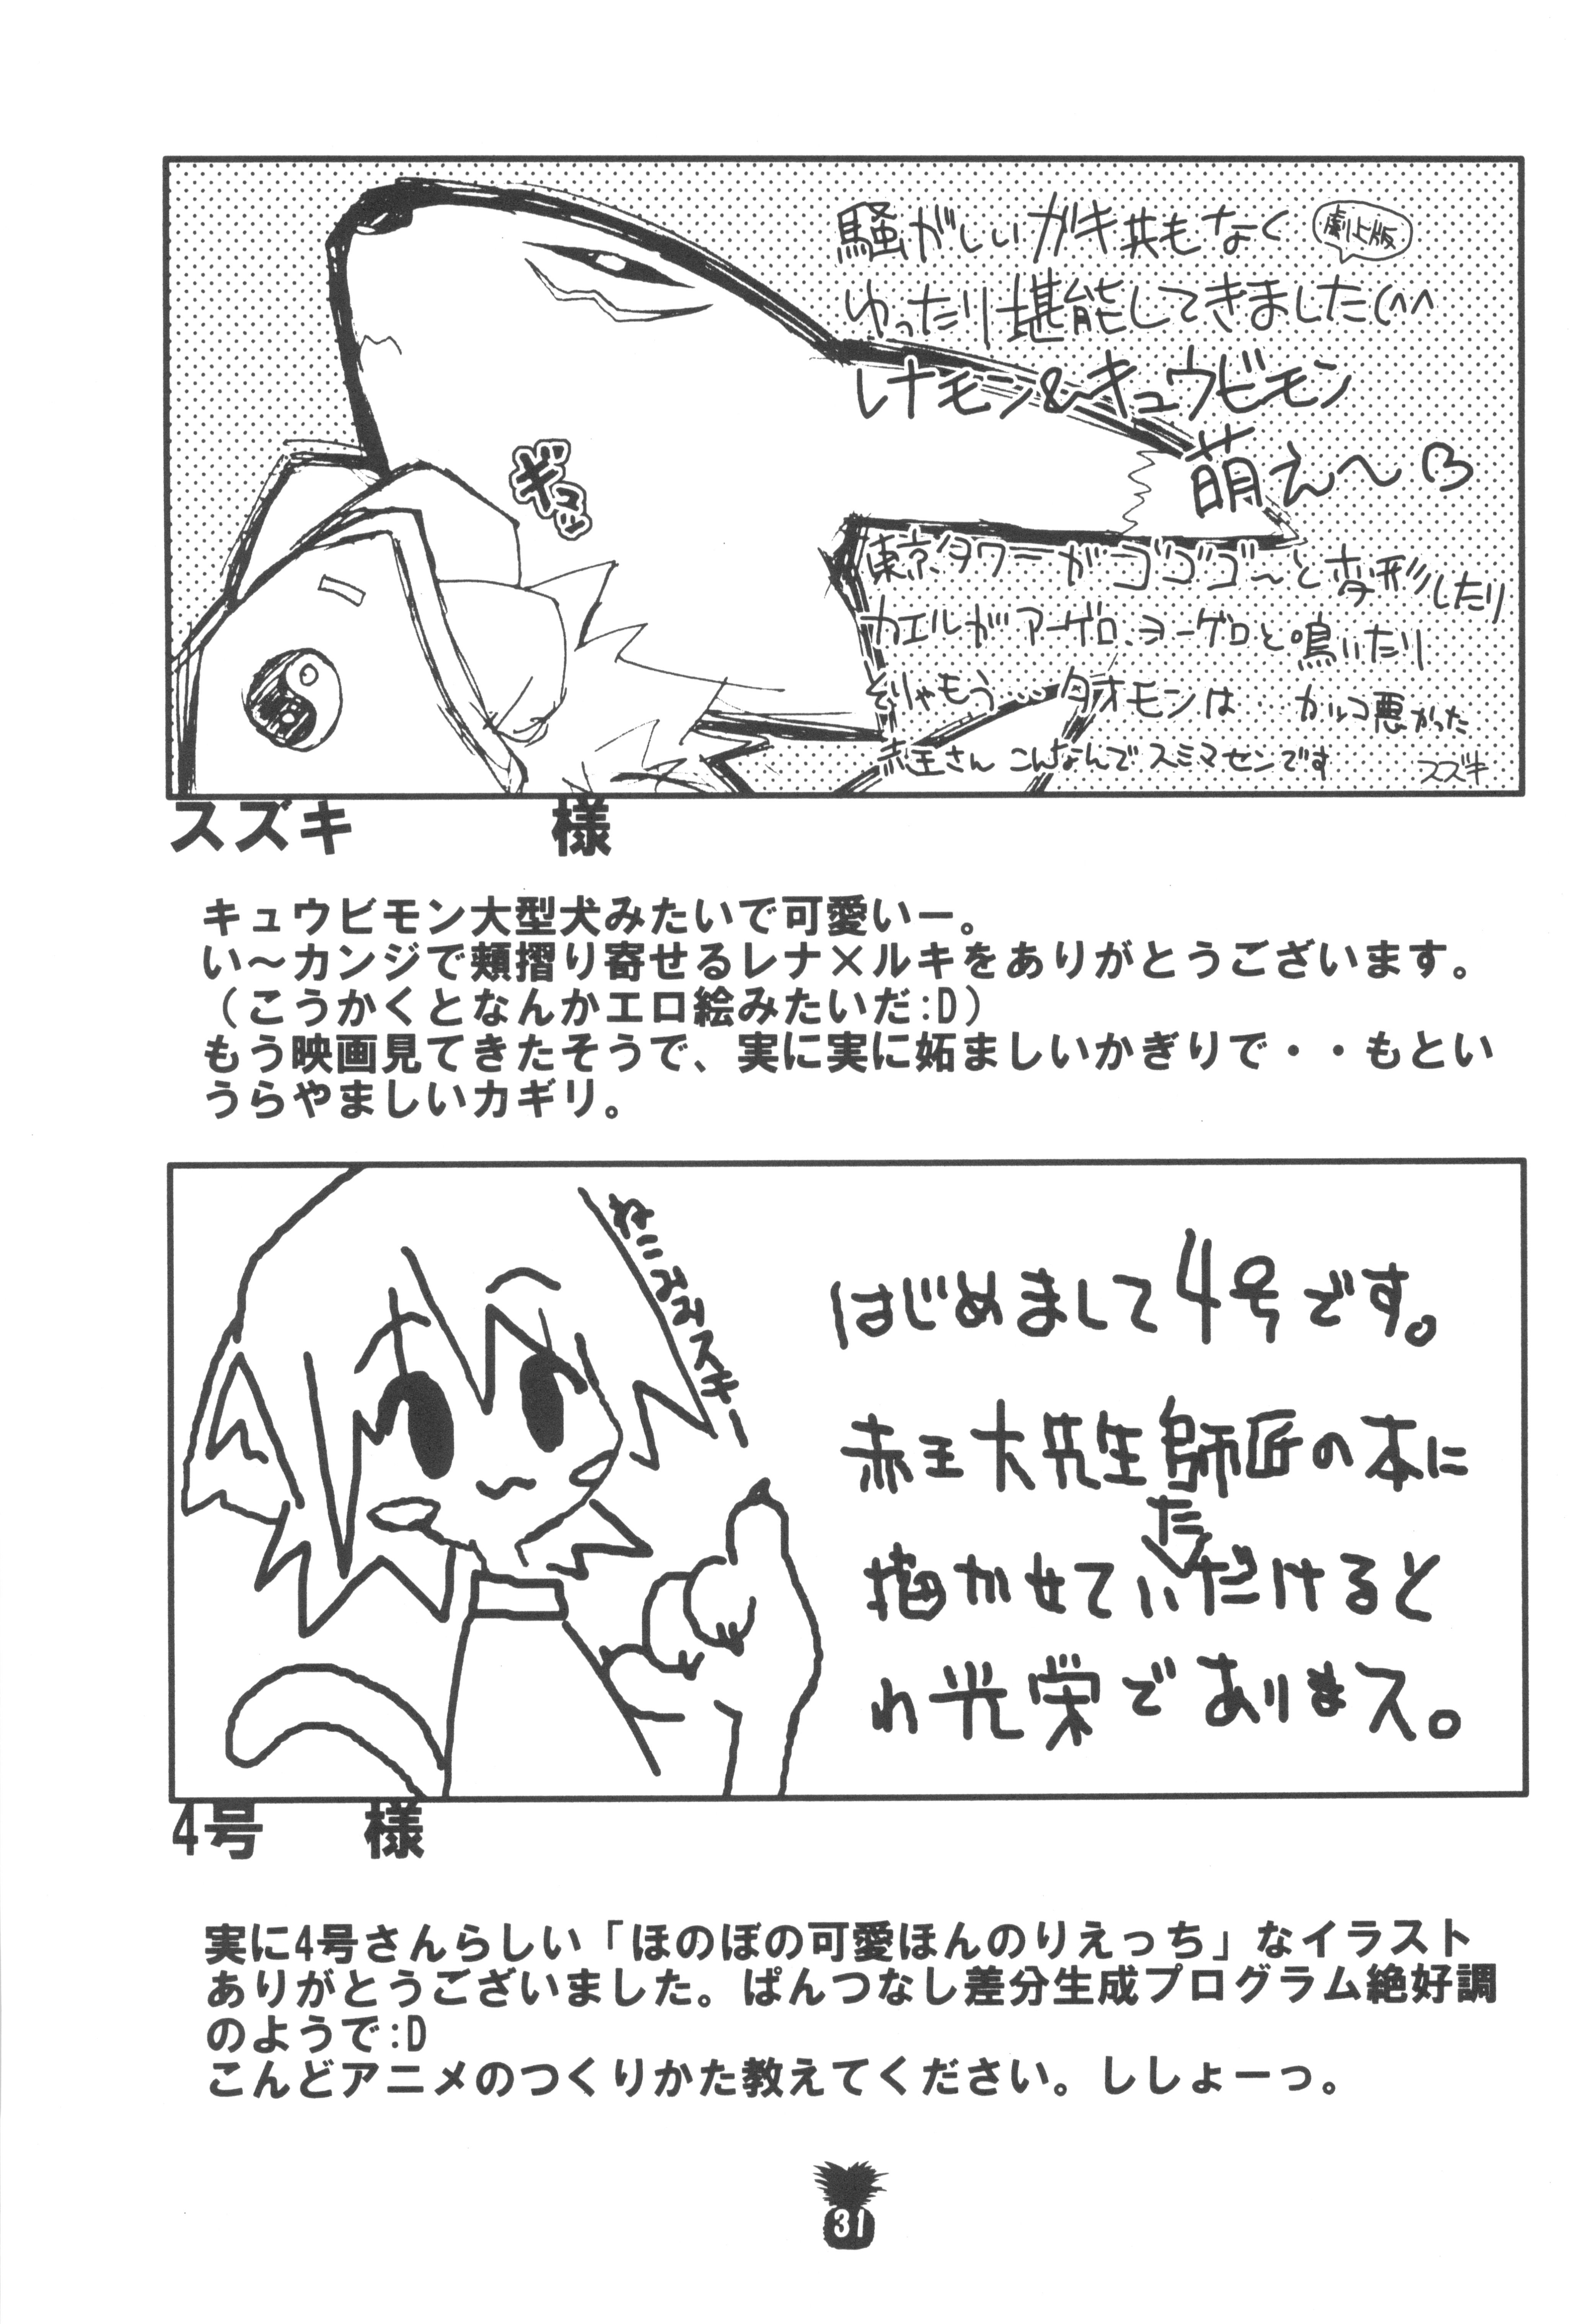 騒がしいガキ共もなく
劇上版
ゆったり堪能してきました(^^
レナモン&キュウビモン
萌え〜♡
ギュッ
東京タワーがゴゴゴ〜と変形したり
カエルがアーゲロ、ヨーゲロと鳴いたり
そりゃもう…タオモンは…カッコ悪かった
赤王さん こんなんでスミマセンです
スズキ
スズキ 様
キュウビモン大型犬みたいで可愛いー。
い〜カンジで頬摺り寄せるレナ×ルキをありがとうございます。
(こうかくとなんかエロ絵みたいだ:D)
もう映画見てきたそうで、実に実に妬ましいかぎりで・・もとい
うらやましいカギリ。
ねこみみスキー
はじめまして4号です。
赤王大先生師匠の本に
描かせていただけると
わ光栄でありまス。
4号 様
実に4号さんらしい「ほのぼの可愛ほんのりえっち」なイラスト
ありがとうございました。ぱんつなし差分生成プログラム絶好調
のようで:D
こんどアニメのつくりかた教えてください。ししょーっ。
31